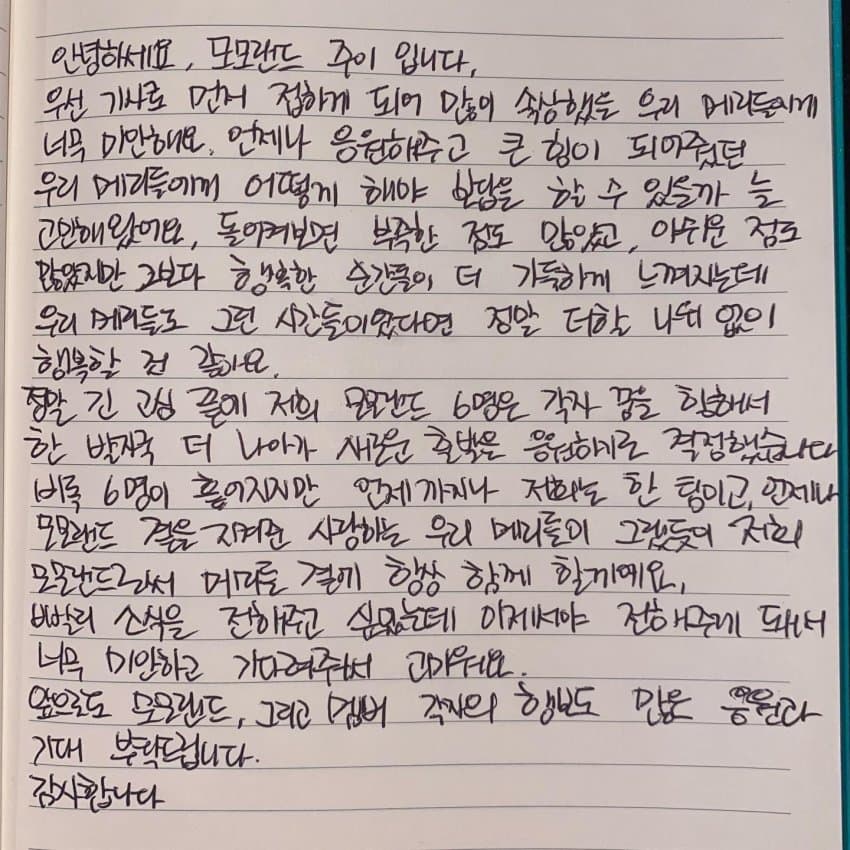 안녕하세요, 모모랜드 주이 입니다.
우선 기사로 먼저 접하게 되어 많이 속상했을 우리 메리들에게
너무 미안해요. 언제나 응원해주고 큰 힘이 되어줬던
우리 메리들에게 어떻게 해야 보답을 할 수 있을까 늘
고민해왔어요, 돌이켜보면 부족한 점도 많았고, 아쉬운 점도
많았지만 그보다 행복한 순간들이 더 가득하게 느껴지는데
우리 메리들도 그런 시간들이었다면 정말 더할 나위 없이
행복할 것 같아요.
정말 긴 고심 끝에 저희 모모랜드 6명은 각자 꿈을 향해서
한 발자국 더 나아가 새로운 출발을 응원하기로 결정했습니다
비록 6명이 흩어지지만 언제까지나 저희는 한 팀이고, 언제나
모모랜드 곁을 지켜준 사랑하는 우리 메리들이 그랬듯이 저희
모모랜드로써 메리들 곁에 항상 함께 할게예요.
빠빨리 소식을 전해주고 싶었는데 이제서야 전해주게 돼서
너무 미안하고 기다려줘서 고마워요.
앞으로도 모모랜드, 그리고 멤버 각자의 행보도 많은 응원과
기대 부탁드립니다.
감사합니다